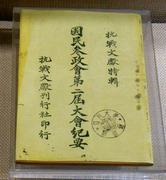 抗戰文獻特輯
國民參政會第二屆大會紀要
抗戰文獻刊行社印行